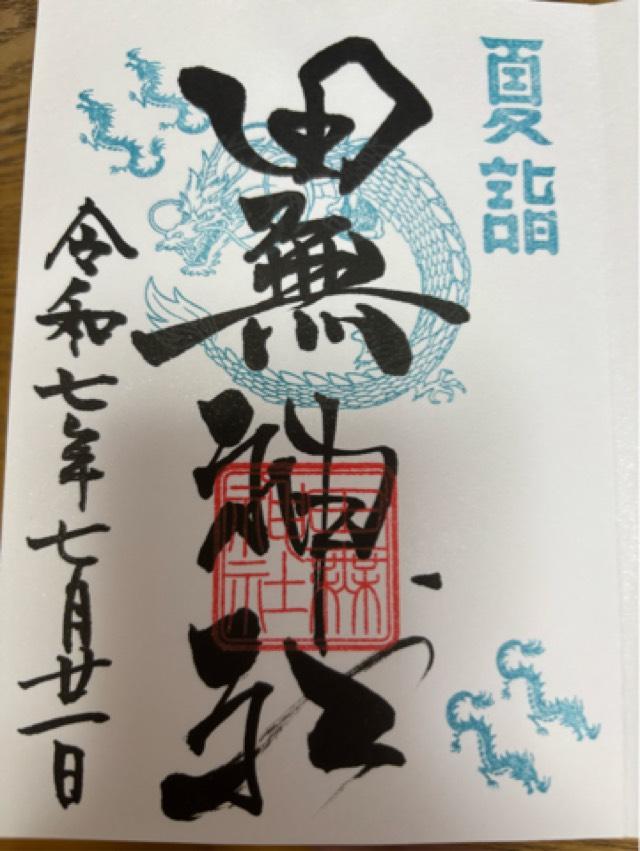 夏詣
田無神社
田無神社
令和七年七月廿一日